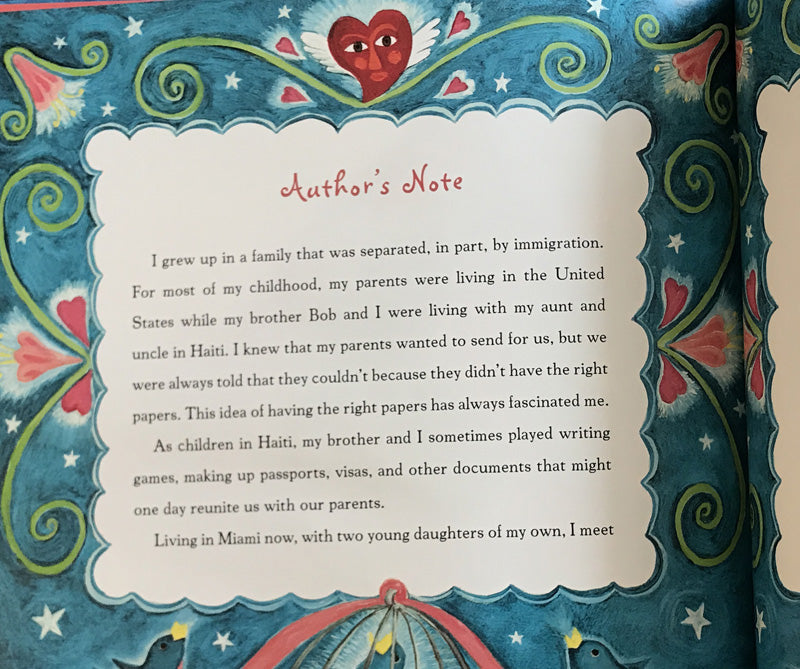 Author's Note
I grew up in a family that was separated, in part, by immigration.
For most of my childhood, my parents were living in the United
States while my brother Bob and I were living with my aunt and
uncle in Haiti. I knew that my parents wanted to send for us, but we
were always told that they couldn't because they didn't have the right
papers. This idea of having the right papers has always fascinated me.
As children in Haiti, my brother and I sometimes played writing
games, making up passports, visas, and other documents that might
one day reunite us with our parents.
Living in Miami now, with two young daughters of my own, I meet